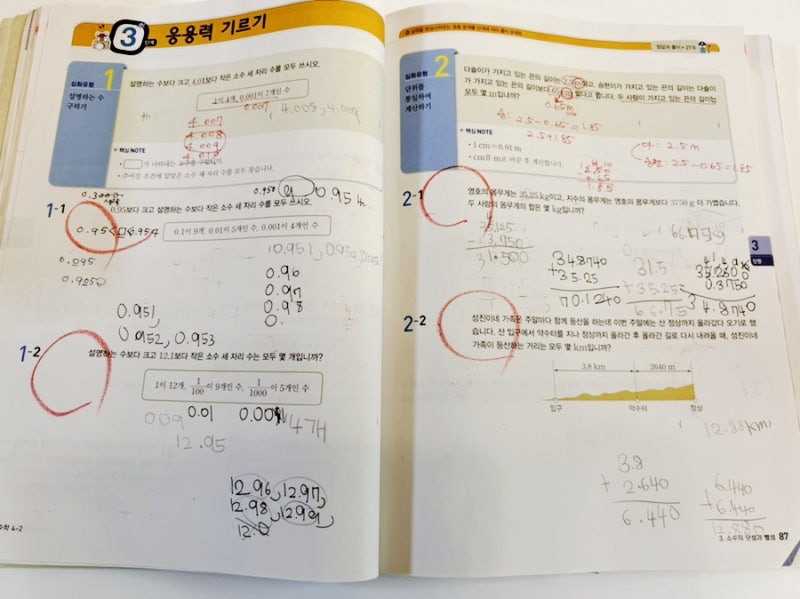 3 단계 응용력 기르기
심화유형 1
설명하는 수
구하기
설명하는 수보다 크고 4.01보다 작은 소수 세 자리 수를 모두 쓰시오.
1이 4개, 0.001이 7개인 수
0.007
4.008, 4.009
4.007
4.008
4.009
4.010
핵심 NOTE
1-1
0.95보다 크고 설명하는 수보다 작은 소수 세 자리 수를 모두 쓰시오.
0.1이 9개, 0.01이 5개인 수, 0.001이 4개인 수
0.954
0.951, 0.952,
0.96
0.97
0.98
0.951,
0.952, 0.953
1-2
설명하는 수보다 크고 12.1보다 작은 소수 세 자리 수는 모두 몇 개입니까?
1이 12개, 1/100이 9개인 수, 1/1000이 5개인 수
0.01
4개
12.95
12.96, 12.97,
12.98, 12.99,
12.0
수학 4-2
정답과 풀이 27쪽
심화유형 2
단위를
통일하여
계산하기
다솔이가 가지고 있는 끈의 길이는 2.5 m이고, 승현이가 가지고 있는 끈의 길이는 다솔이
가 가지고 있는 끈의 길이보다 65 cm 짧다고 합니다. 두 사람이 가지고 있는 끈의 길이는
모두 몇 m입니까?
0.65m
2.5-0.65=1.85
2.5+1.85
2.5m
2.5-0.65=1.85
핵심 NOTE
• 1 cm=0.01 m
• cm를 m로 바꾼 후 계산합니다.
2-1
영호의 몸무게는 35.25 kg이고, 지수의 몸무게는 영호의 몸무게보다 3750 g 더 가볍습니다.
두 사람의 몸무게의 합은 몇 kg입니까?
- 3.750
31.500
348740
+ 35.25
70.1240
31.5
+ 35.25
66.75
0.3750
34.8740
3
단원
2-2
성진이네 가족은 주말마다 함께 등산을 하는데 이번 주말에는 산 정상까지 올라갔다 오기로 했
습니다. 산 입구에서 약수터를 지나 정상까지 올라간 후 올라간 길로 다시 내려올 때, 성진이네
가족이 등산하는 거리는 모두 몇 km입니까?
3.8 km 2640 m
입구 약수터 정상
12.88km
3.8
+ 2.640
6.440
6.440
+ 6.440
12.880
3. 소수의 덧셈과 뺄셈 87